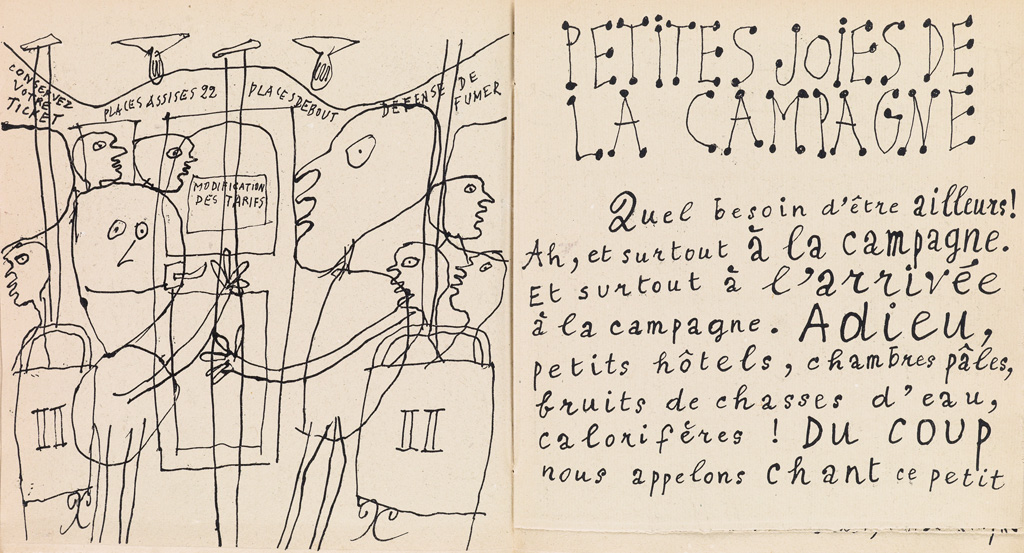 CONSERVEZ
VOTRE
TICKET
PLACES ASSISES 22
PLACES DEBOUT
DÉFENSE DE
FUMER
MODIFICATION
DES TARIFS
III
II
PETITES JOIES DE
LA CAMPAGNE
Quel besoin d'être ailleurs!
Ah, et surtout à la campagne.
Et surtout à l'arrivée
à la campagne. Adieu,
petits hôtels, chambres pâles,
bruits de chasses d'eau,
calorifères ! DU COUP
nous appelons chant ce petit